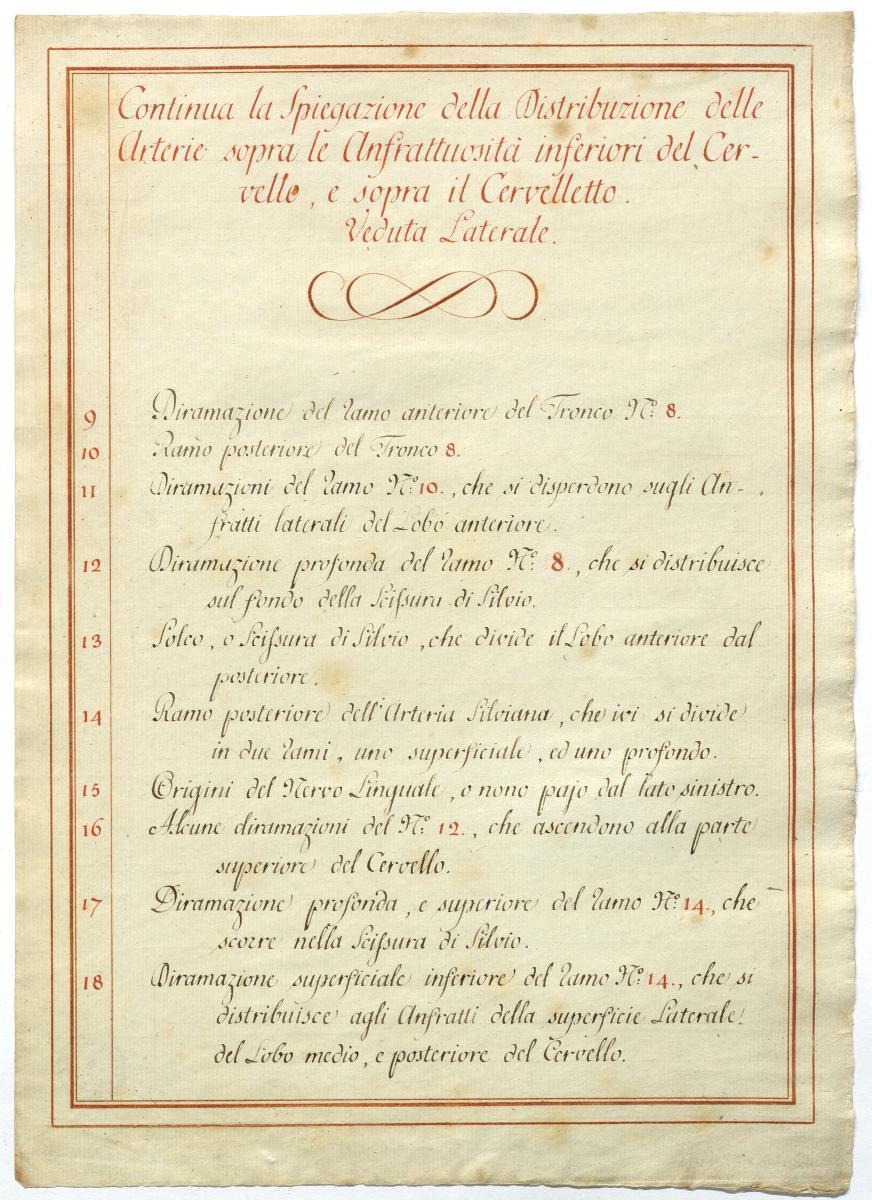 Continua la Spiegazione della Distribuzione delle
Arterie sopra le Anfrattuosità inferiori del Cer-
vello, e sopra il Cervelletto.
Veduta Laterale.
9 Diramazione del ramo anteriore del Tronco Nº. 8.
10 Ramo posteriore del Tronco 8.
11 Diramazioni del ramo Nº. 10., che si disperdono sugli An-
fratti laterali del Lobo anteriore.
12 Diramazione profonda del ramo Nº. 8., che si distribuisce
sul fondo della Scissura di Silvio.
13 Solco, o Scissura di Silvio, che divide il Lobo anteriore dal
posteriore.
14 Ramo posteriore dell'Arteria Silviana, che ivi si divide
in due rami, uno superficiale, ed uno profondo.
15 Origini del Nervo Linguale, o nono pajo dal lato sinistro.
16 Alcune diramazioni del Nº. 12., che ascendono alla parte
superiore del Cervello.
17 Diramazione profonda, e superiore del ramo Nº. 14., che
scorre nella Scissura di Silvio.
18 Diramazione superficiale inferiore del ramo Nº. 14., che si
distribuisce agli Anfratti della superficie Laterale
del Lobo medio, e posteriore del Cervello.